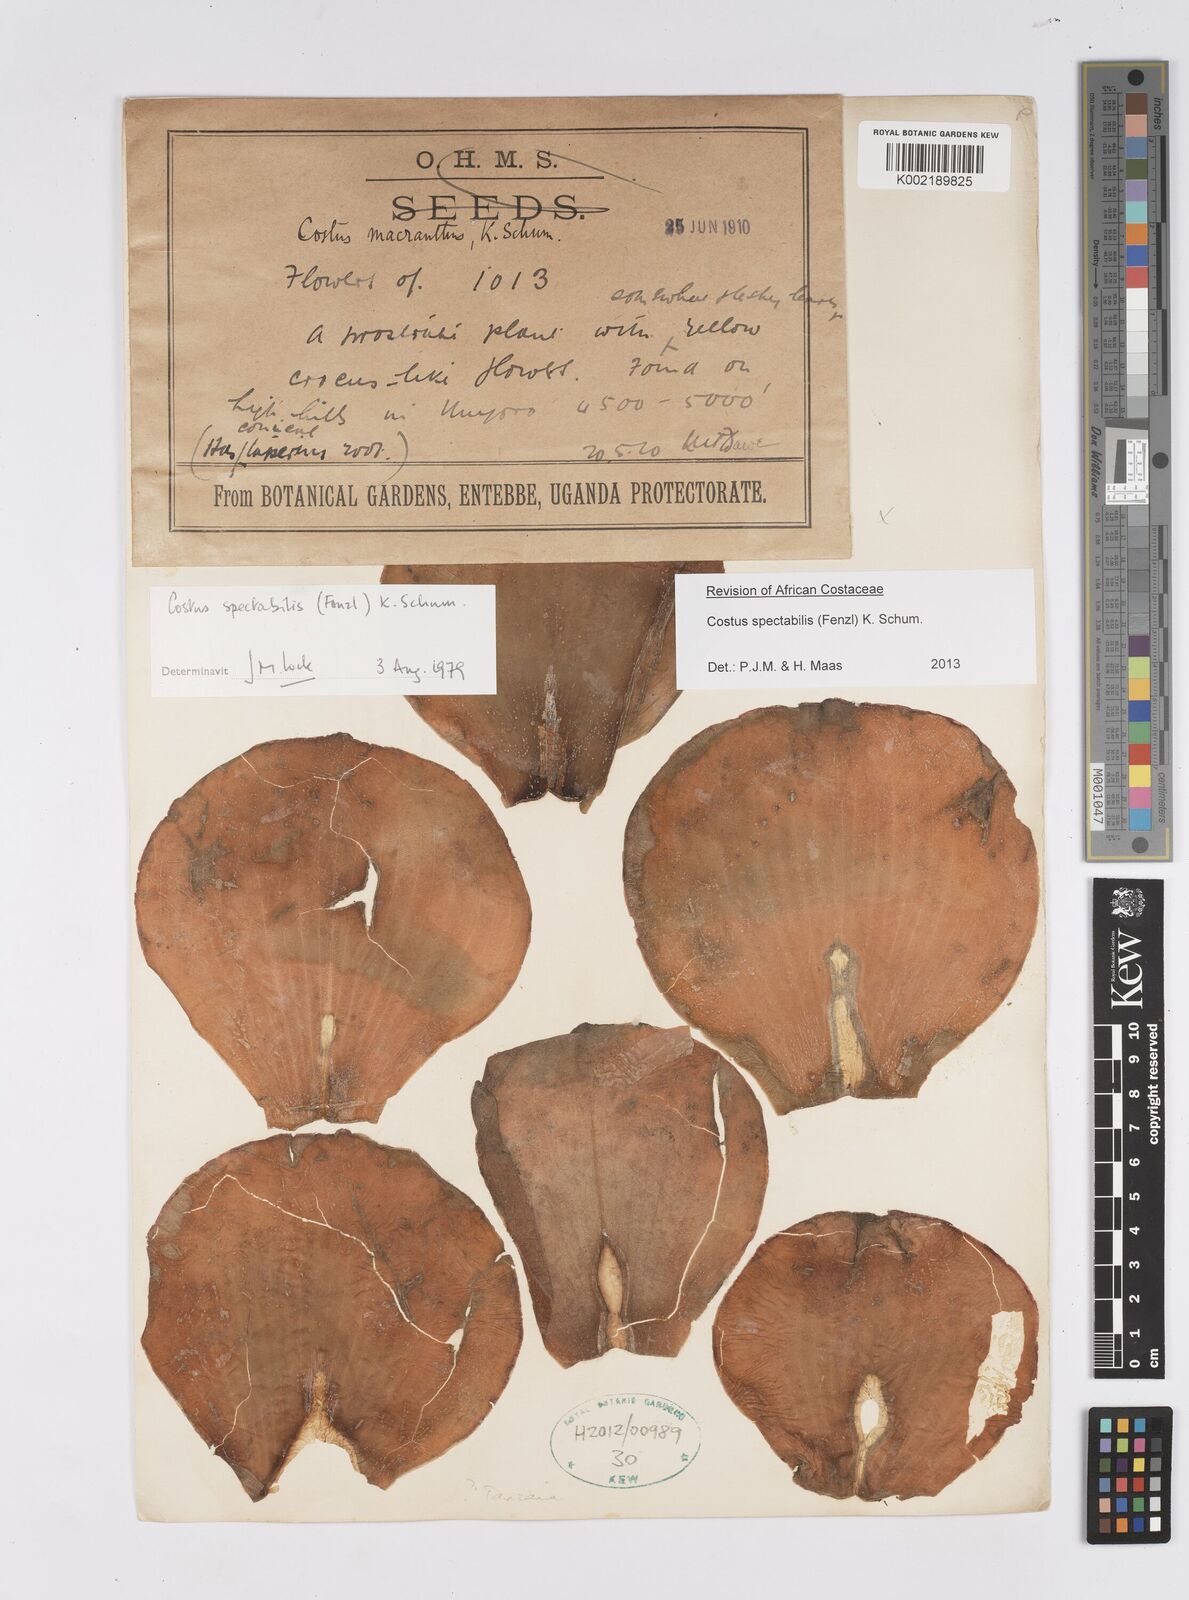 O. H. M. S.
SEEDS.
Costus macranthus, K. Schum.
25 JUN 1910
Flowers of. 1013
somewhat fleshy leaves
A prostrate plant with yellow
crocus-like flowers. Found on
high hills in Unyoro 4500 - 5000'
conical
(Has tuberous root.)
20.5.10 M.T. Dawe
From BOTANICAL GARDENS, ENTEBBE, UGANDA PROTECTORATE.
ROYAL BOTANIC GARDENS KEW
K002189825
Costus spectabilis (Fenzl) K. Schum.
Determinavit J M Lock 3 Aug. 1979
Revision of African Costaceae
Costus spectabilis (Fenzl) K. Schum.
Det.: P.J.M. & H. Maas 2013
ROYAL BOTANIC GARDENS
H2012/00989
30
KEW
? Tanzania
inches
centimeters
Don Williams
M001047
Royal Botanic Gardens
Kew
0 1 2 3 4 5 6 7 8 9 10
cm
copyright reserved